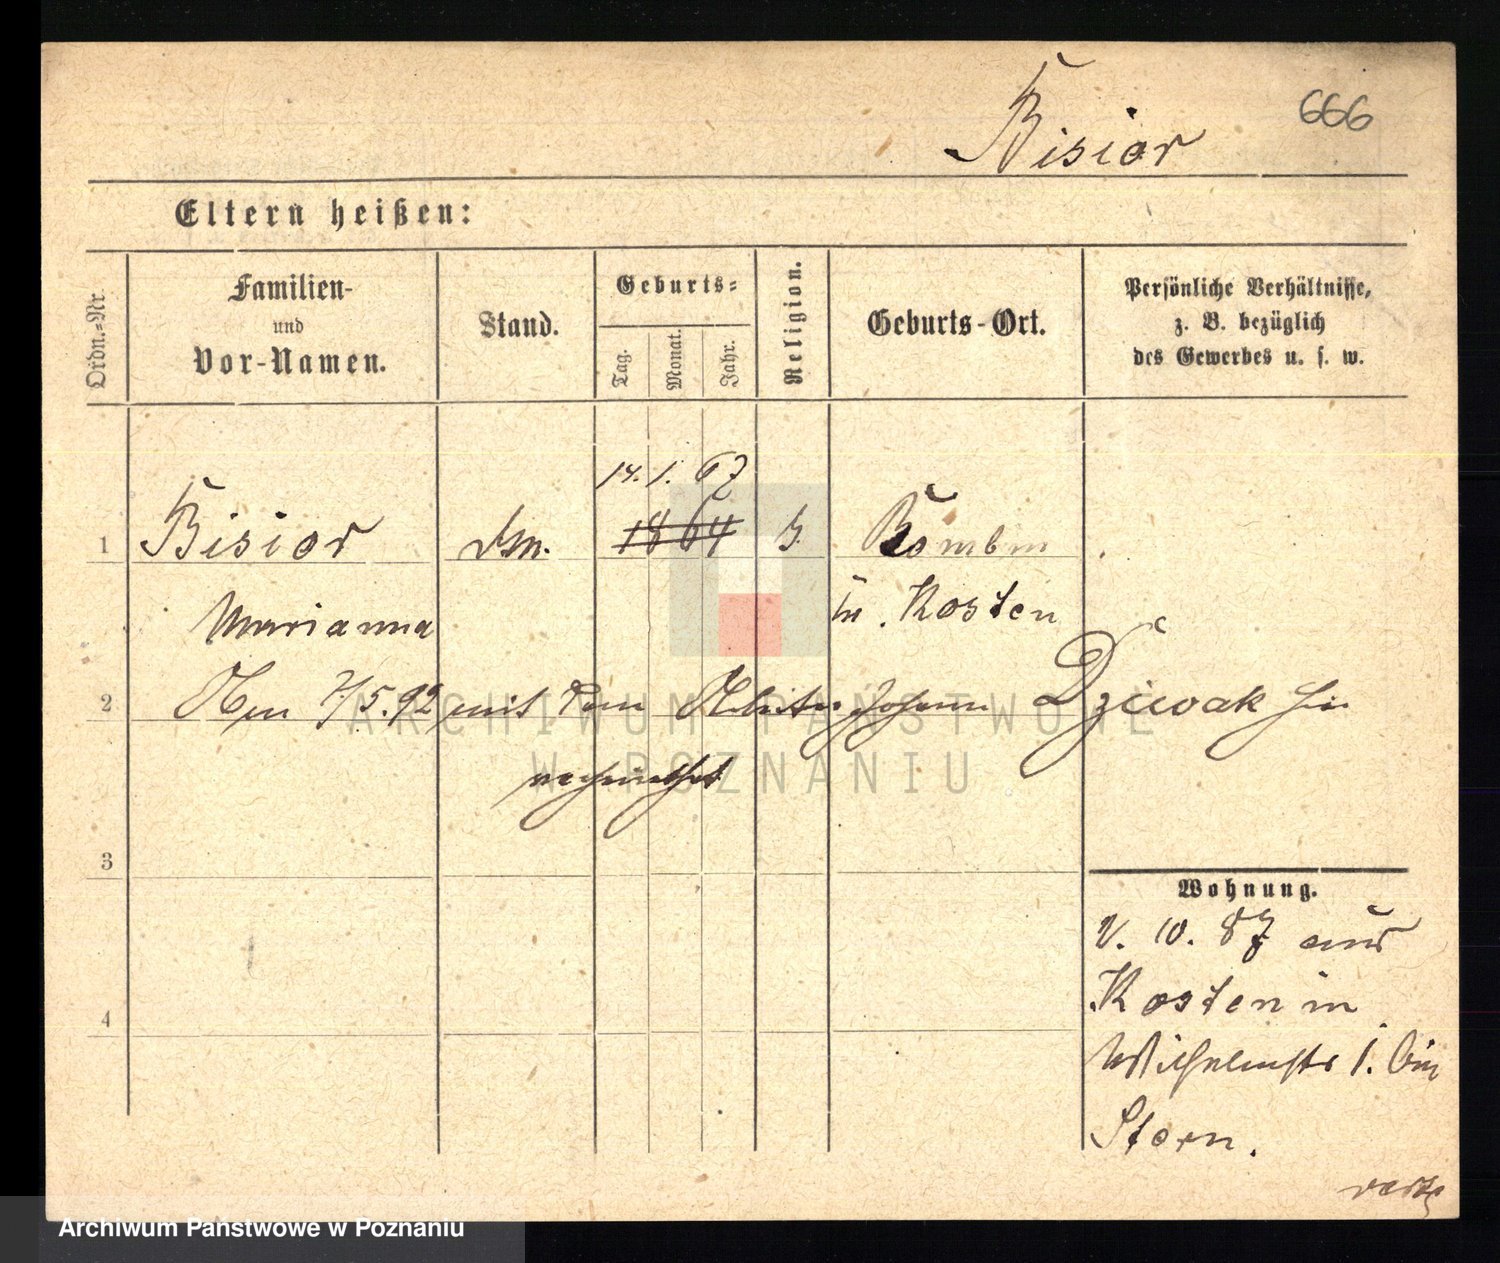 666
Bisior
Eltern heißen:
Ordn.=Nr.
Familien-
und
Vor-Namen.
Stand.
Geburts=
Tag.
Monat.
Jahr.
Religion.
Geburts-Ort.
Persönliche Verhältnisse,
z. B. bezüglich
des Gewerbes u. s. w.
14. 1. 67
1 Bisior 1864
Marianna Kosten
2 7/5.92 mit dem Arbeiter Johann Dziewak hier
verheirathet
3
Wohnung.
V. 10. 87 aus
Kosten in
4
Wilhelmstr 1. bei
Stern.
verte
ARCHIWUM PAŃSTWOWE
W POZNANIU
Archiwum Państwowe w Poznaniu